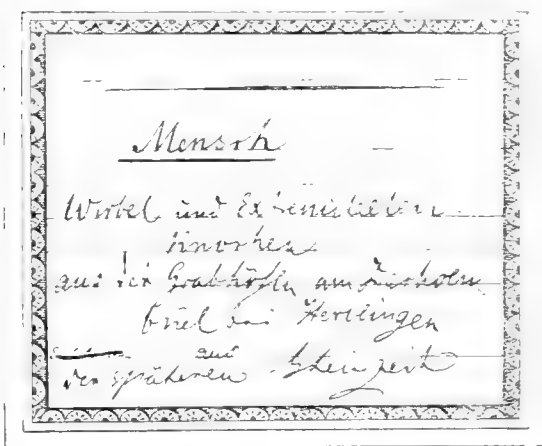 Mensch
Wirbel und Extremitäten
knochen
aus der Grabhöhle am
bei Herrlingen
aus
der späteren Steinzeit